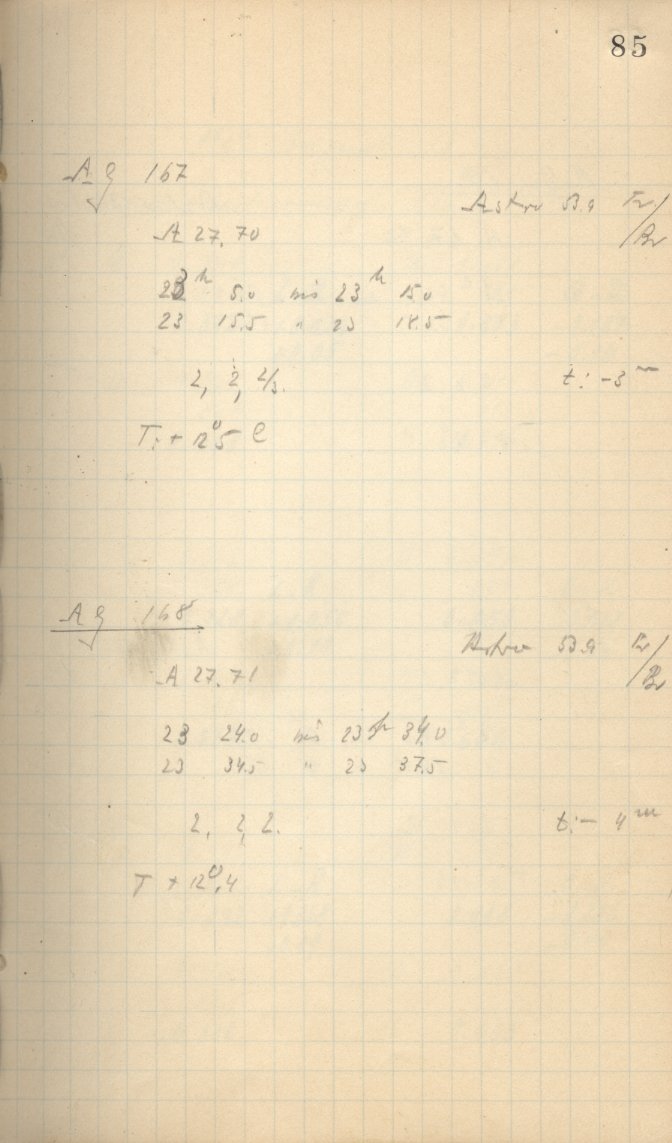 85
AG 167
Astro B.a Tr/Br
A 27.70
23h 5.0 bis 23h 15.0
23 15.5 " 23 18.5
2, 2, 2/3.
t: -3m
T: + 12°5 C
AG 168
Astro B.a Tr/Br
A 27.71
23 24.0 bis 23h 34.0
23 34.5 " 23 37.5
2, 2, 2.
t: - 4m
T + 12°.4